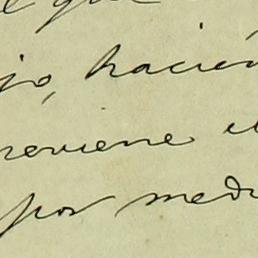 que
jo, hacien
reviene el
por medi